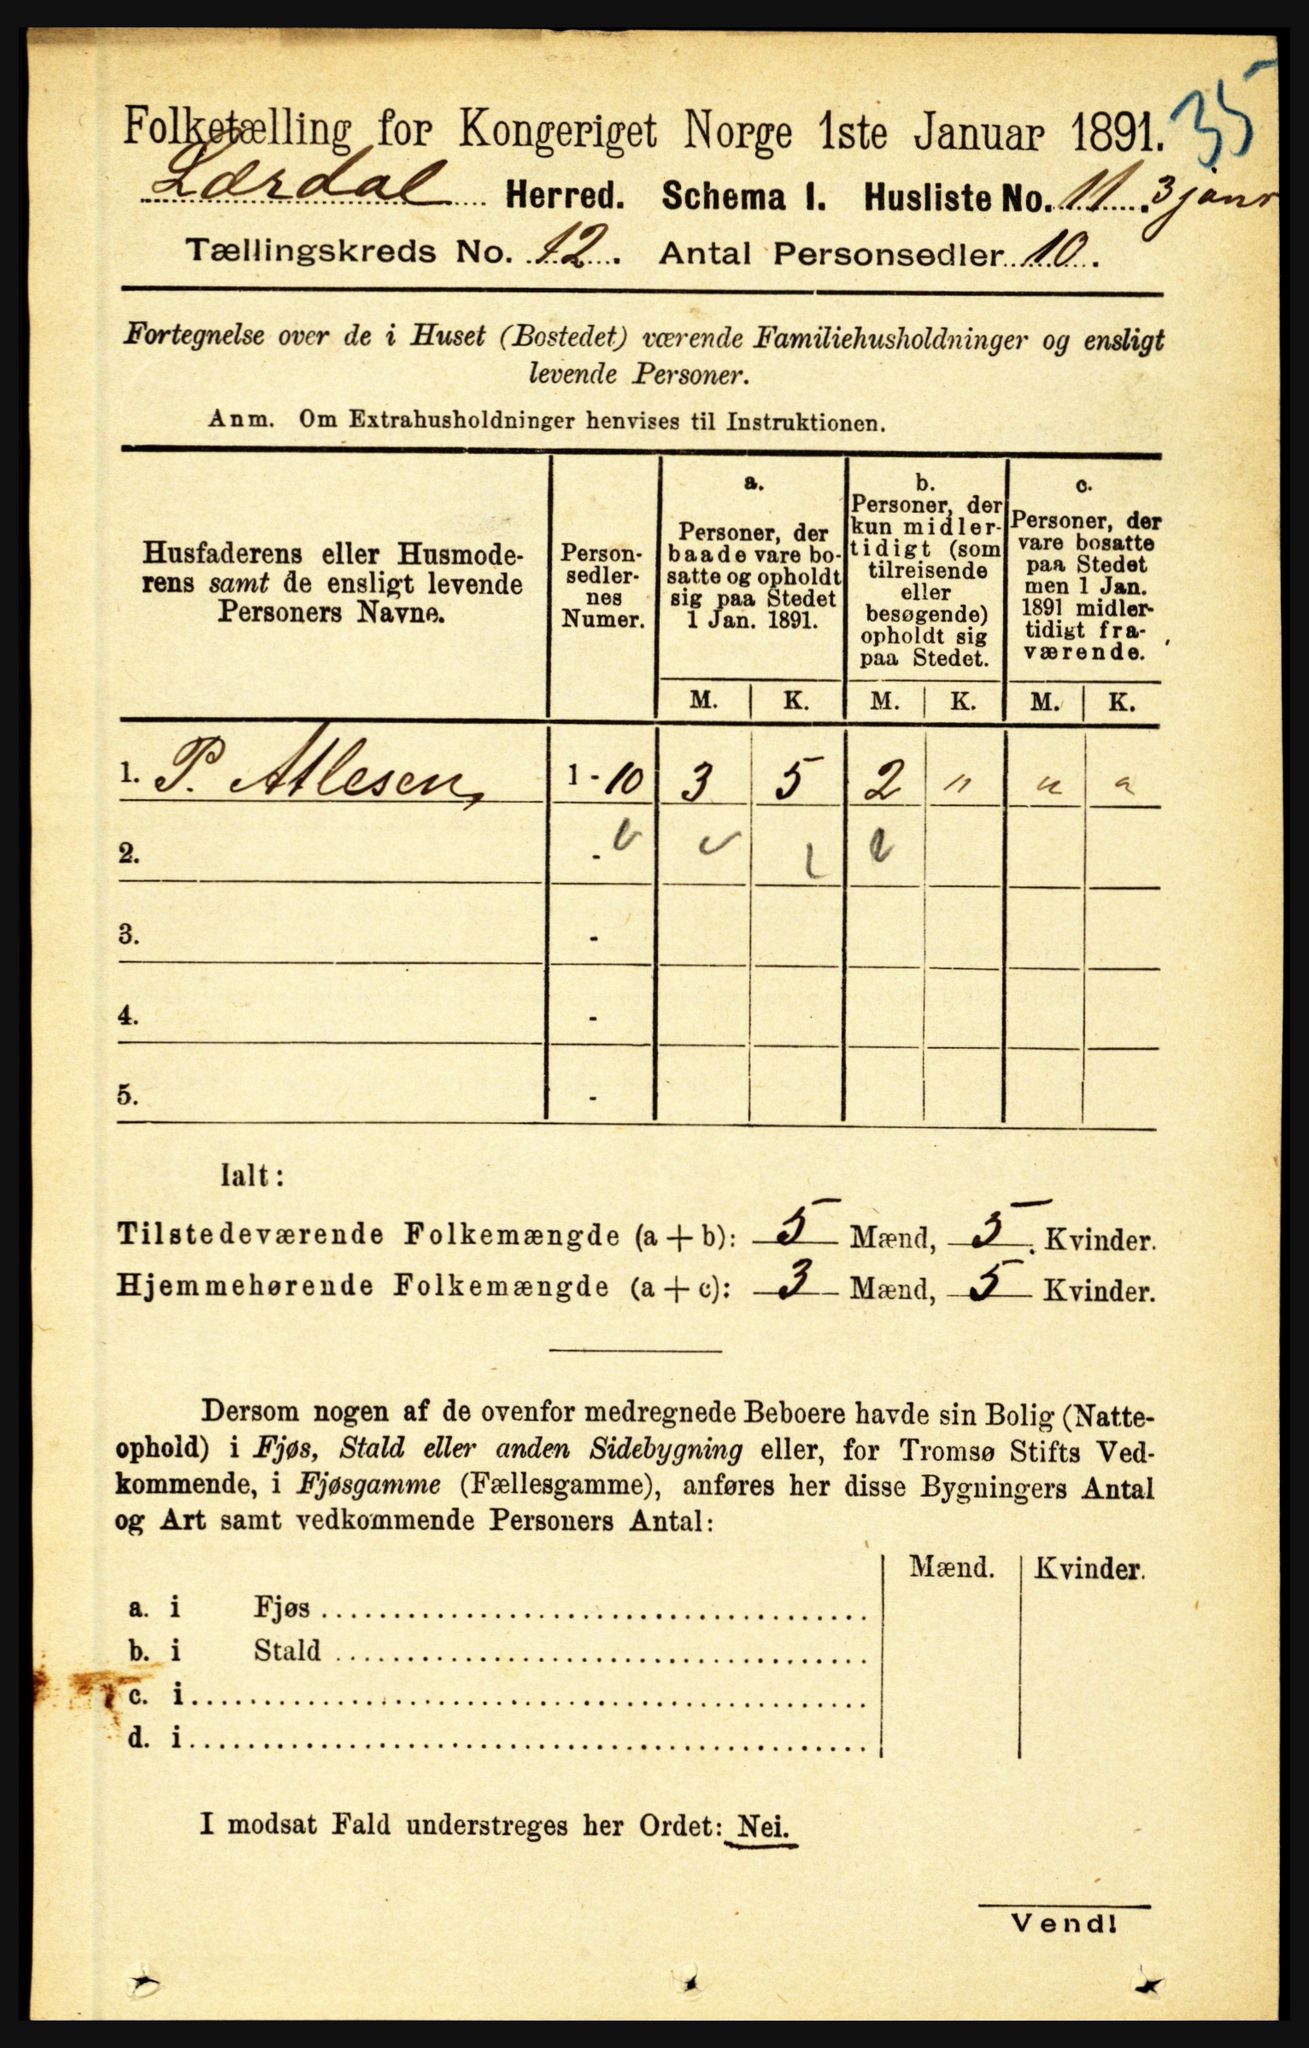 35
Folketælling for Kongeriget Norge 1ste Januar 1891.
Lærdal Herred. Schema I. Husliste No. 11. 3 janr
Tællingskreds No. 12. Antal Personsedler 10.
Fortegnelse over de i Huset (Bostedet) værende Familiehusholdninger og ensligt
levende Personer.
Anm. Om Extrahusholdninger henvises til Instruktionen.
Husfaderens eller Husmode-
rens samt de ensligt levende
Personers Navne.
Person-
sedler-
nes
Numer.
a.
Personer, der
baade vare bo-
satte og opholdt
sig paa Stedet
1 Jan. 1891.
b.
Personer, der
kun midler-
tidigt (som
tilreisende
eller
besøgende)
opholdt sig
paa Stedet.
c.
Personer, der
vare bosatte
paa Stedet
men 1 Jan.
1891 midler-
tidigt fra-
værende.
M. K. M. K. M. K.
1. P. Atlesen, 1 - 10 3 5 2 " " "
2. -
3. -
4. -
5. -
Ialt:
Tilstedeværende Folkemængde (a + b): 5 Mænd, 5. Kvinder.
Hjemmehørende Folkemængde (a + c): 3 Mænd, 5 Kvinder.
Dersom nogen af de ovenfor medregnede Beboere havde sin Bolig (Natte-
ophold) i Fjøs, Stald eller anden Sidebygning eller, for Tromsø Stifts Ved-
kommende, i Fjøsgamme (Fællesgamme), anføres her disse Bygningers Antal
og Art samt vedkommende Personers Antal:
Mænd. Kvinder.
a. i Fjøs
b. i Stald
c. i
d. i
I modsat Fald understreges her Ordet: Nei.
Vend!